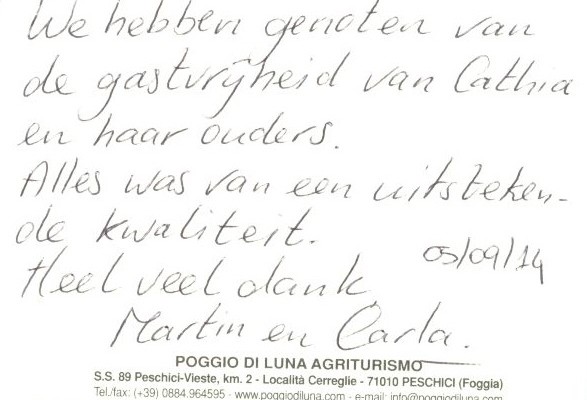 We hebben genoten van
de gastvrijheid van Cathia
en haar ouders.
Alles was van een uitsteken-
de kwaliteit.
05/09/14
Heel veel dank
Martin en Carla.
POGGIO DI LUNA AGRITURISMO
S.S. 89 Peschici-Vieste, km. 2 - Località Cerreglie - 71010 PESCHICI (Foggia)
Tel./fax: (+39) 0884.964595 - www.poggiodiluna.com - e-mail: info@poggiodiluna.com